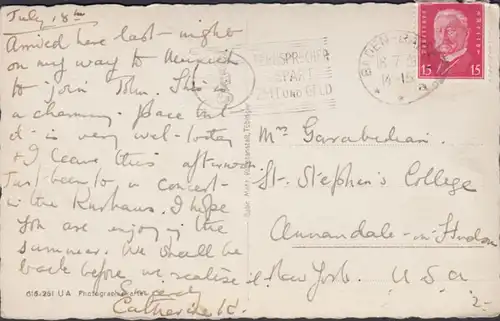 July 18th
Arrived here last night
on my way to Munich
to join John. This is
a charming place but
it is very wet today
& I leave this afternoon
Just been to a concert
in the Kurhaus. I hope
you are enjoying the
summer. We shall be
back before we realize it.
Catherine K.
618-261 U A Photographie
FERNSPRECHER
SPART
ZEIT UND GELD
BADEN-BADEN
18.7
14-15
a
15 15
Mrs Garabedian
St. Stephen's College
Annandale-on-Hudson
New York. U.S.A